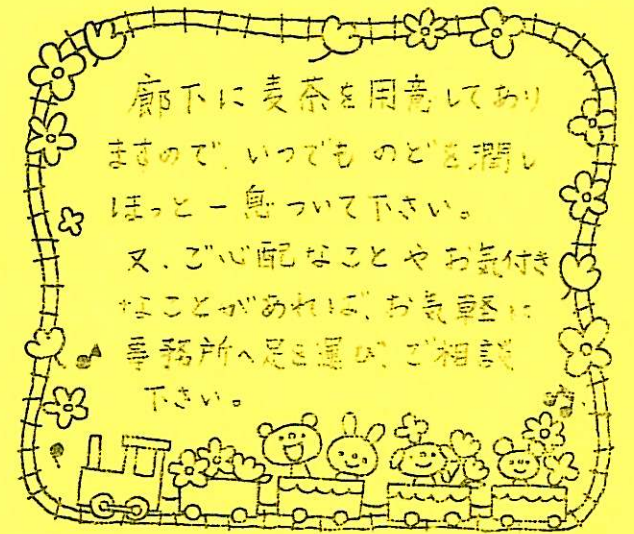 廊下に麦茶を用意してあり
ますので、いつでも のどを潤し
ほっと一息ついて下さい。
又、ご心配なことや お気付き
なことがあれば、お気軽に
事務所へ足を運び、ご相談
下さい。